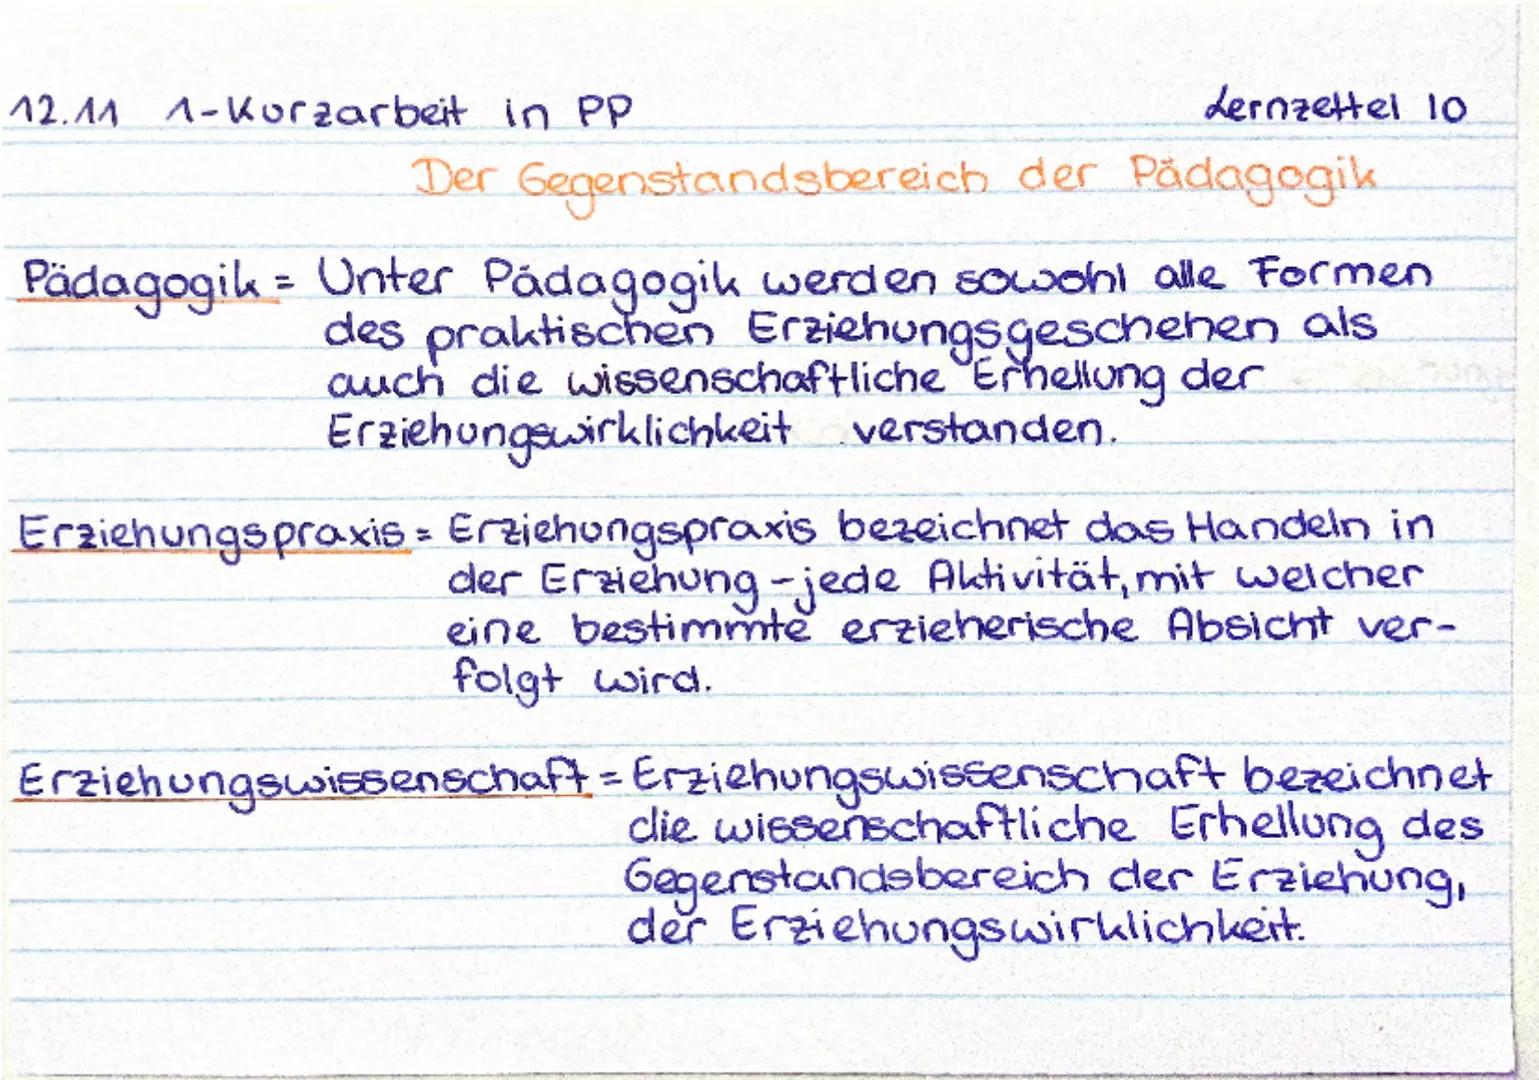 12.11 1-Kurzarbeit in PP Lernzettel 10
Der Gegenstandsbereich der Pädagogik
Pädagogik = Unter Pädagogik werden sowohl alle Formen
des praktischen Erziehungsgeschehen als
auch die wissenschaftliche Erhellung der
Erziehungswirklichkeit verstanden.
Erziehungspraxis = Erziehungspraxis bezeichnet das Handeln in
der Erziehung - jede Aktivität, mit welcher
eine bestimmte erzieherische Absicht ver-
folgt wird.
Erziehungswissenschaft = Erziehungswissenschaft bezeichnet
die wissenschaftliche Erhellung des
Gegenstandsbereich der Erziehung,
der Erziehungswirklichkeit.